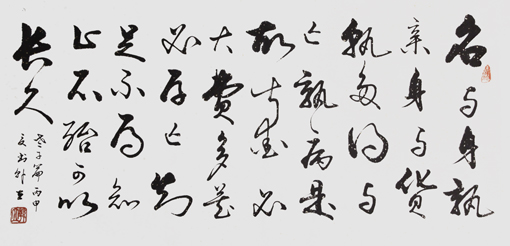 名与身孰
亲身与货
孰多得与
亡孰病是
故甚爱必
大费多藏
必厚亡知
足不辱知
止不殆可以
长久
老子篇丙申